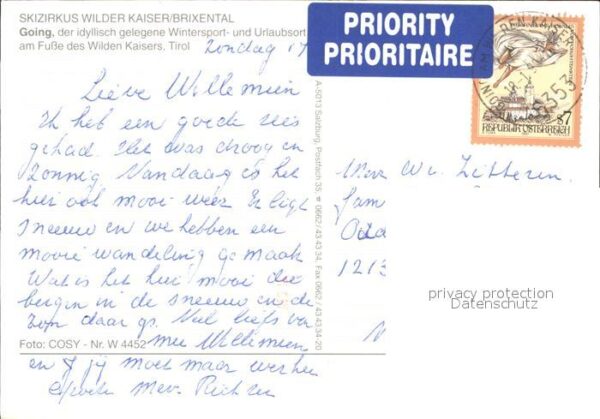 SKIZIRKUS WILDER KAISER/BRIXENTAL
Going, der idyllisch gelegene Wintersport- und Urlaubsort
am Fuße des Wilden Kaisers, Tirol
PRIORITY
PRIORITAIRE
Zondag 17
Lieve Willemien
Ik heb een goede reis
gehad. Het was droog en
zonnig. Vandaag is het
hier ook mooi weer. Er ligt
sneeuw en we hebben een
mooie wandeling gemaakt
Wat is het hier mooi die
bergen in de sneeuw en de
zon daar op. Veel liefs van
mij Willemien
en jij moet maar werken
Mevr. Richter
Foto: COSY - Nr. W 4452
A-5013 Salzburg, Postfach 35, ☎ 0662/43 43 34, Fax 0662 / 43 4334-20
REPUBLIK ÖSTERREICH
S7
6353
Mevr W.
1213
privacy protection
Datenschutz